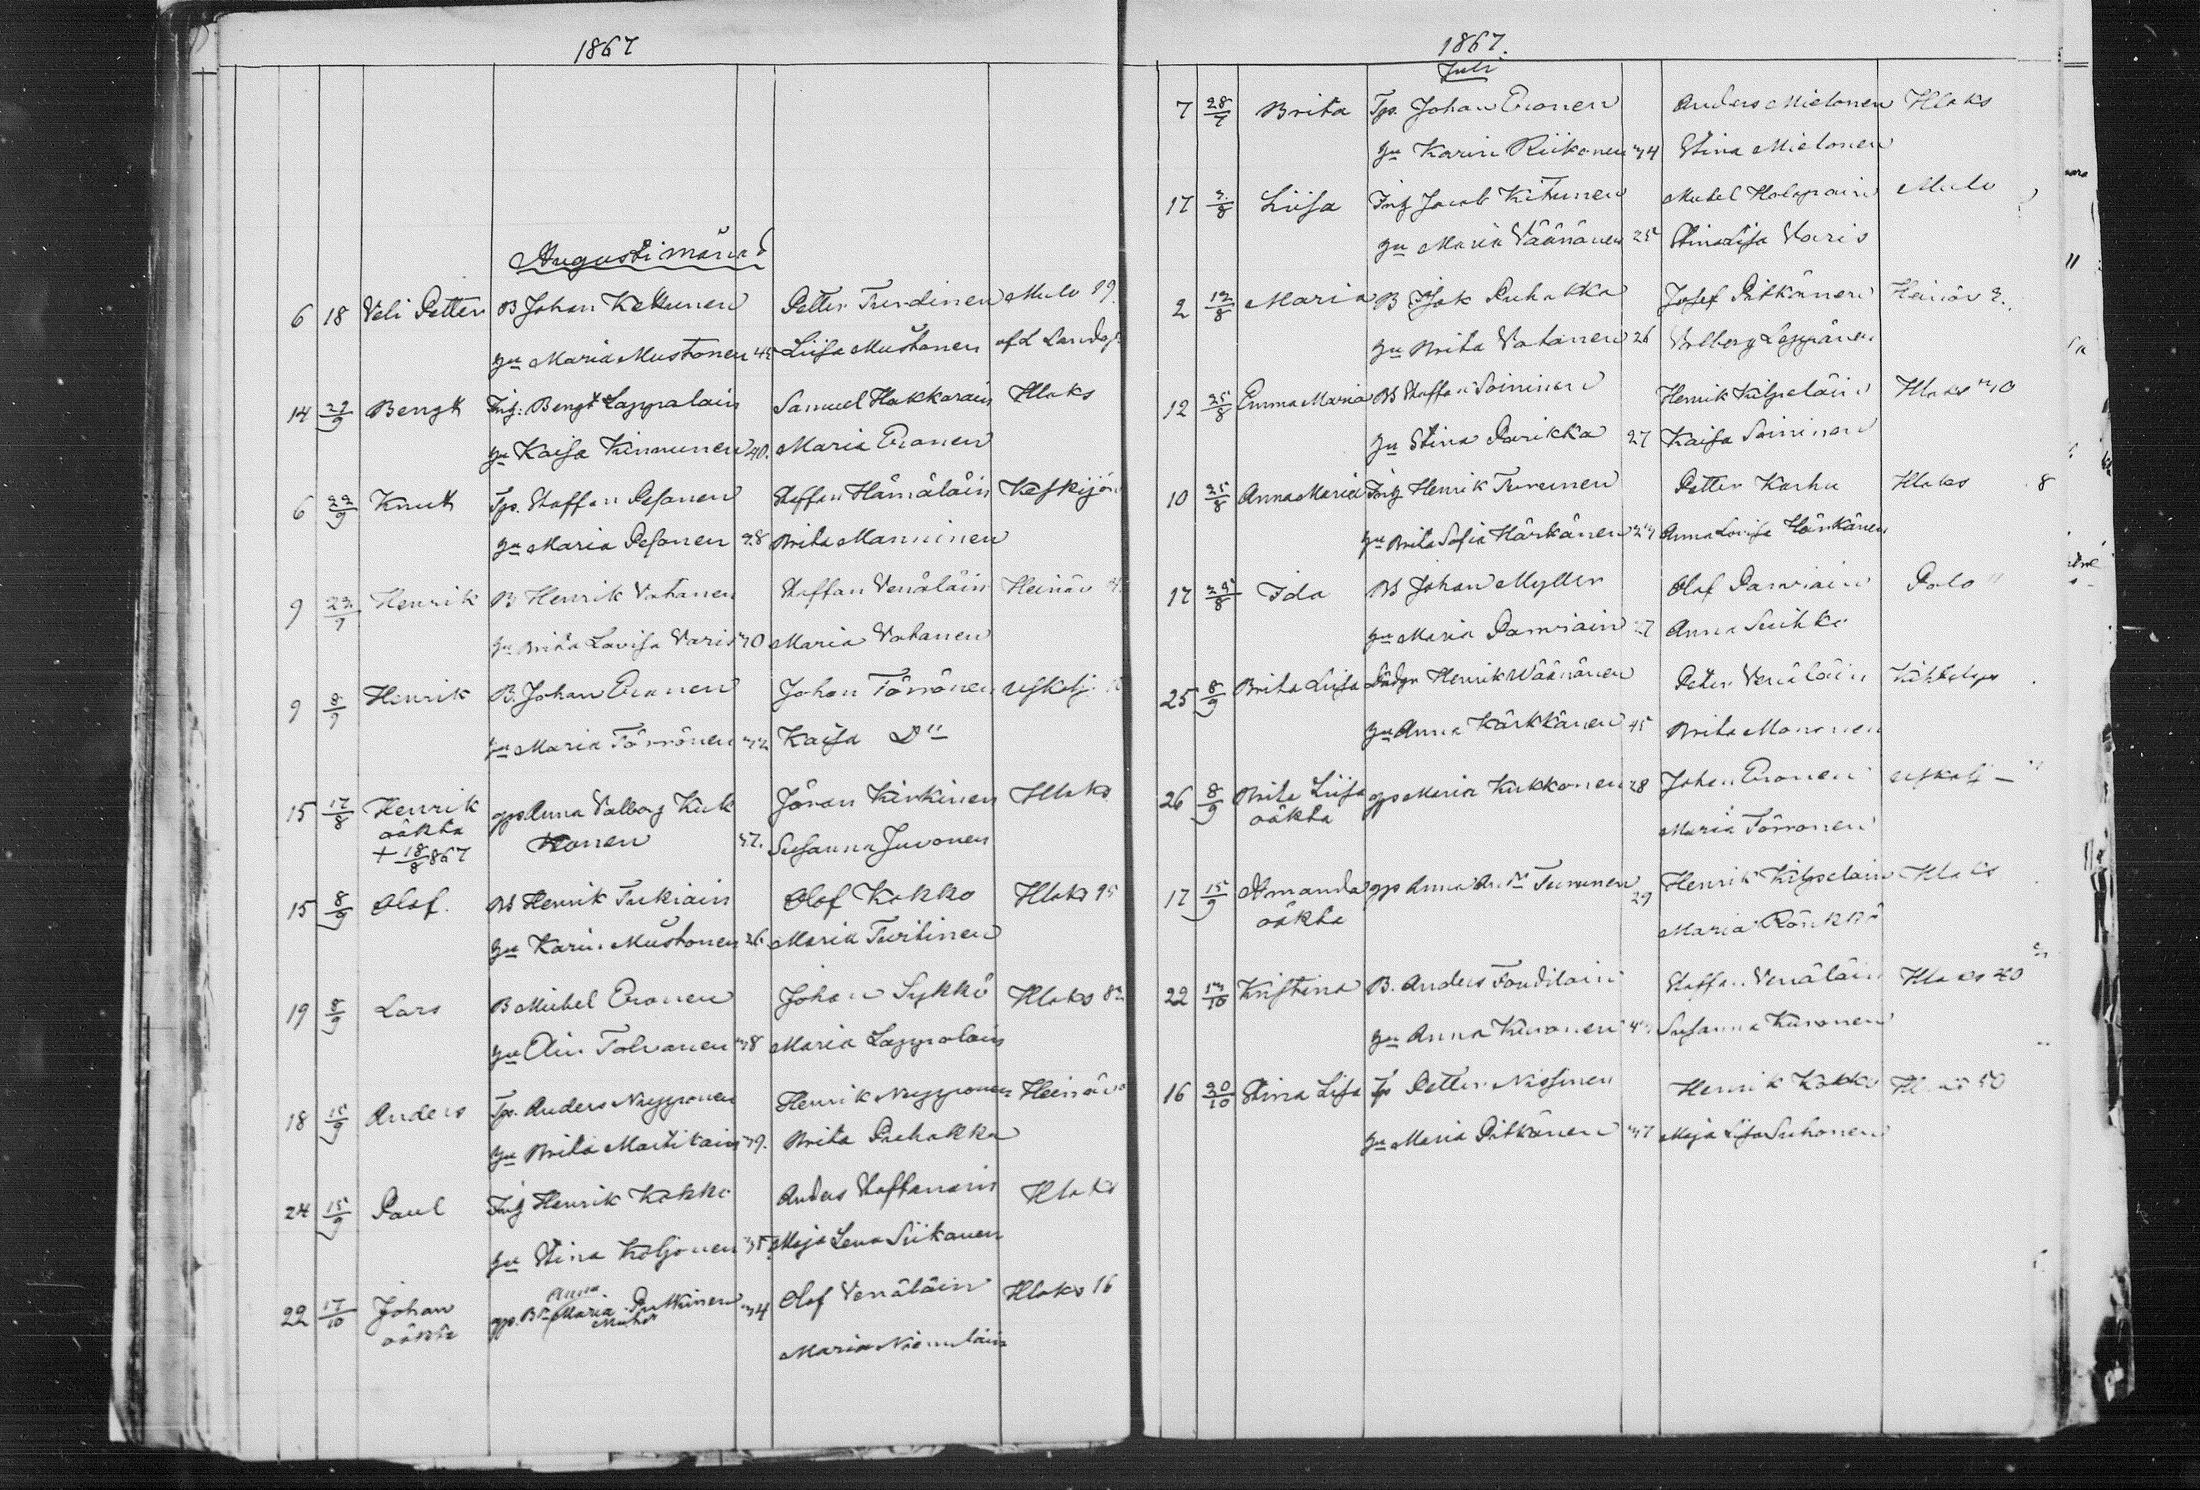 1867
Augusti månad
6 18 Veli Petter B Johan Kettunen Petter Turdinen Mulo 19.
hu Maria Mustonen 45 Liisa Mustonen
14 29/9 Bengt Inh: Bengt Lappalain Samuel Hakkarain Hlaks
hu Kaisa Kinnunen 40. Maria Eronen
6 22/9 Knut Tp. Staffan Pesonen Staffan Hämäläin Keskijär
hu Maria Pesonen 28 Brita Manninen
9 22/9 Henrik B Henrik Vatanen Staffan Venäläin Heinäv
hu Brita Lovisa Varis 30 Maria Vatanen
9 8/9 Henrik B. Johan Eronen Johan Törrönen Uskalj.
hu Maria Törrönen 32 Kaisa D"
15 17/8 Henrik gp Anna Valborg Kuk Jöran Kinkinen Hlaks
oäkta konen 37. Susanna Juvonen
+ 18/8 867
15 8/9 Olof. Bs Henrik Tukiain Olof Kakko Hlaks 95
hu Karin Mustonen 26. Maria Turtinen
19 8/9 Lars B Mickel Eronen Johan Sykkö Hlaks 82
hu Elin Tolvanen 38 Maria Lappalain
18 15/9 Anders Tp. Anders Nupponen Henrik Nupponen Heinäv
hu Brita Martikain 39. Brita Puhakka
24 15/9 Paul Inh Henrik Kakko Anders Hlaks
hu Stina Koljonen 35 Maja Lena Siikanen
22 17/10 Johan gp. Anna Maria Putkinen 34 Olof Venäläin Hlaks 16
oäkta Maria
1867.
Juli
7 28/7 Brita Tp. Johan Eronen Anders Mielonen Hlaks
hu Karin Riikonen 34 Stina Mielonen
17 3/8 Liisa Inh Jacob Kitunen Mickel Holopain Mulo
hu Maria Väänänen 25 Stina Lisa Varis
2 12/8 Maria B Isak Puhakka Josef Pitkänen Heinäv 2.
hu Brita Vatanen 26 Valborg Leppänen
12 25/8 Emma Maria Bs Staffan Soininen Henrik Kilpeläin Hlaks 30
hu Stina Parikka 27 Kaisa Soininen
10 25/8 Anna Maria Inh Henrik Turunen Petter Karhu Hlaks 8
hu Brita Sofia Härkänen 23 Anna Lovisa Härkänen
17 25/8 Ida Bs Johan Myller Olof Parviain Polo
hu Maria Parviain 27 Anna Suihko
25 8/9 Brita Liisa Henrik Wäänänen Peter Venäläin
hu Anna Kärkkänen 45 Brita Mononen
26 8/9 Brita Liisa gp Maria Kukkonen 28 Johan Eronen Uskalj
oäkta Maria Törronen
17 15/9 Amanda gp Anna Turunen 29 Henrik Kilpelain Hlaks
oäkta Maria Rönkkö
22 13/10 Kristina B. Anders Staffan Venäläin Hlaks 40
hu Anna Kuronen Susanna Kuronen
16 20/10 Stina Lisa Tp Petter Nissinen Henrik Kakko Hlaks 50
hu Maria Pitkänen 37 Maja Lisa Suhonen